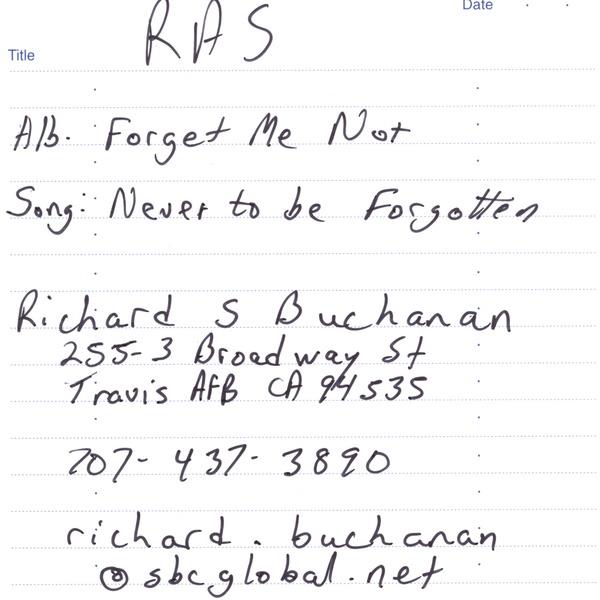 RAS
Date
Title
Alb. Forget Me Not
Song: Never to be Forgotten
Richard S Buchanan
255-3 Broadway St
Travis AFB CA 94535
707-437-3890
richard.buchanan
@sbcglobal.net